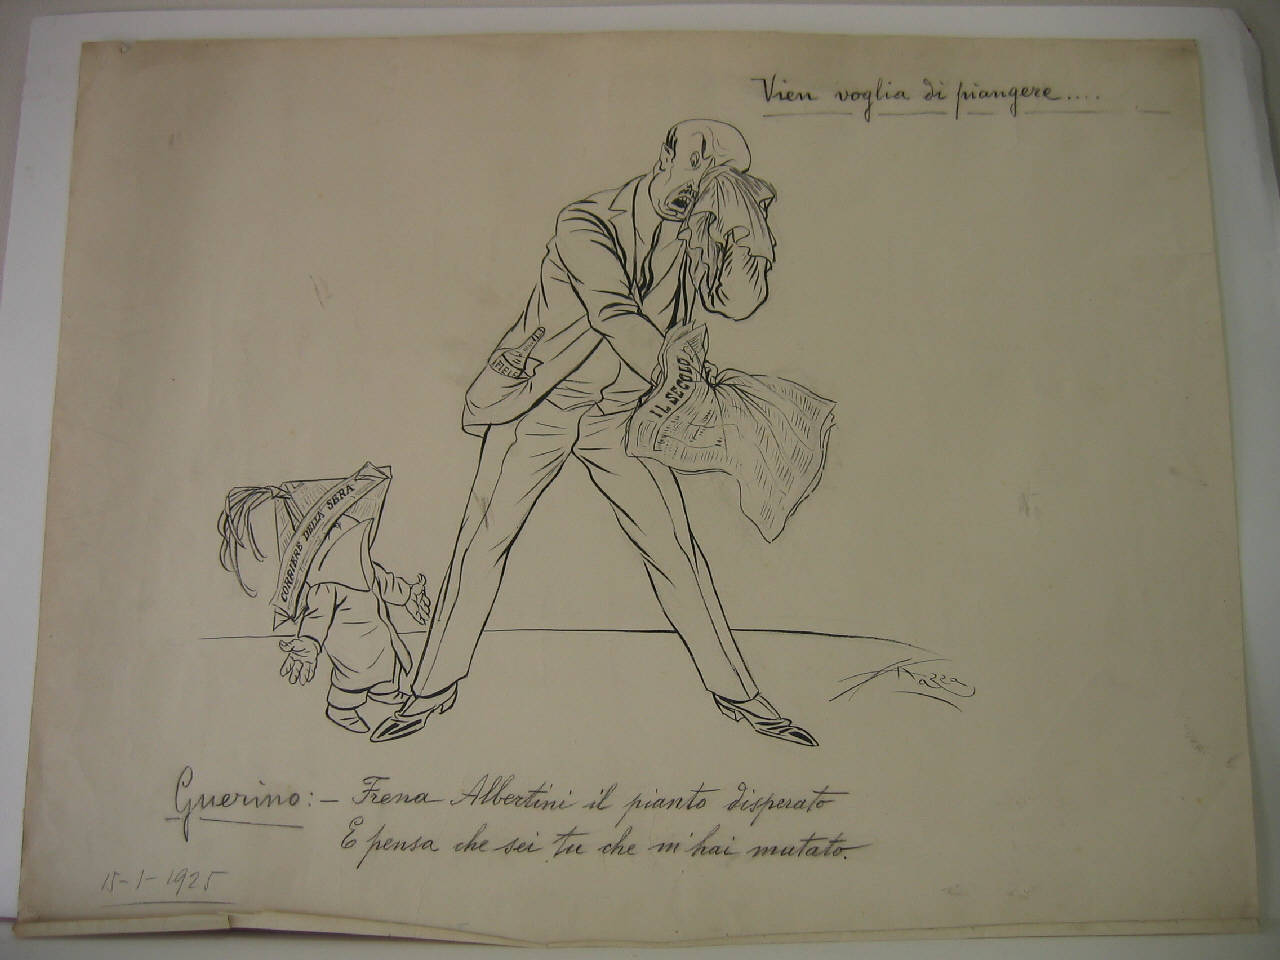 Vien voglia di piangere....
IL SECOLO
CORRIERE DELLA SERA
Guerino: – Frena Albertini il pianto disperato
E pensa che sei tu che m'hai mutato.
15-1-1925